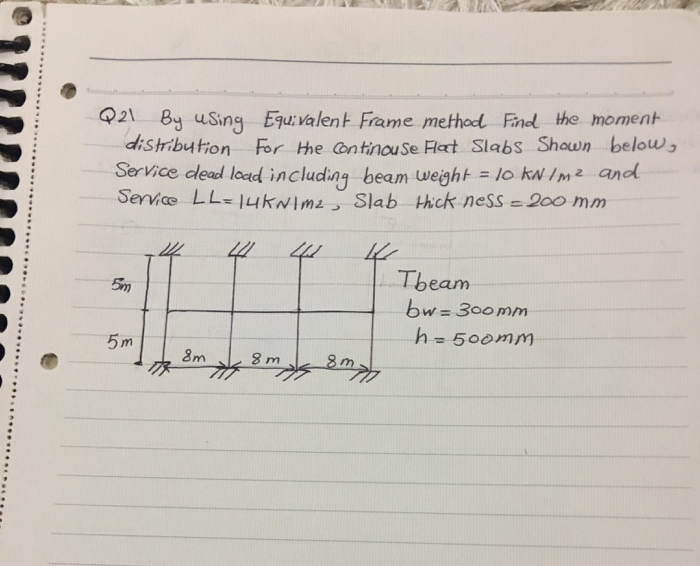 Q2\ By using Equivalent Frame method Find the moment
distribution For the Continouse Flat Slabs Shown below,
Service dead load including beam weight = 10 KN/m² and
Service LL = 14KN/m2, Slab thick ness = 200 mm
5m
5m
8m
8m
8m
Tbeam
bw = 300mm
h = 500mm